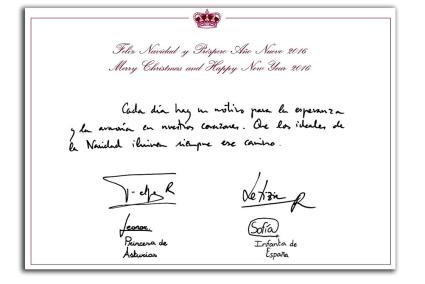 Feliz Navidad y Próspero Año Nuevo 2016
Merry Christmas and Happy New Year 2016
Cada día hay un motivo para la esperanza
y la armonía en nuestros corazones. Que los ideales de
la Navidad iluminen siempre ese camino.
Felipe R Letizia R
Leonor Sofía
Princesa de Infanta de
Asturias España